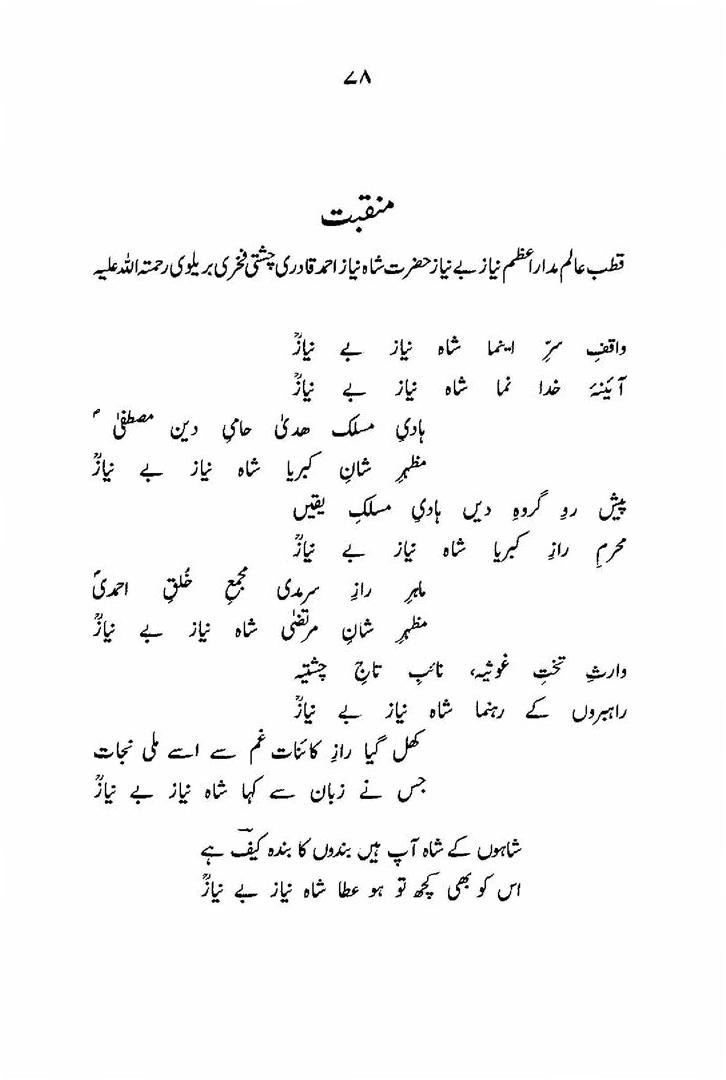 ۷۸
منقبت
قطب عالم مدار اعظم نیاز بے نیاز حضرت شاہ نیاز احمد قادری چشتی فخری بریلوی رحمتہ اللہ علیہ
واقفِ سرِّ اینما شاہ نیاز بے نیازؒ
آئینۂ خدا نما شاہ نیاز بے نیازؒ
ہادیِ مسلک ھدیٰ حامیِ دین مصطفیٰ ؐ
مظہرِ شانِ کبریا شاہ نیاز بے نیازؒ
پیش روِ گروہِ دیں ہادیِ مسلکِ یقیں
محرمِ رازِ کبریا شاہ نیاز بے نیازؒ
ماہرِ رازِ سرمدی مجمعِ خُلقِ احمدیؐ
مظہرِ شانِ مرتضیٰؓ شاہ نیاز بے نیازؒ
وارثِ تختِ غوثیہ، نائبِ تاجِ چشتیہ
راہبروں کے رہنما شاہ نیاز بے نیازؒ
کھل گیا رازِ کائنات غم سے اسے ملی نجات
جس نے زبان سے کہا شاہ نیاز بے نیازؒ
شاہوں کے شاہ آپ ہیں بندوں کا بندہ کیفؔ ہے
اس کو بھی کچھ تو ہو عطا شاہ نیاز بے نیازؒ